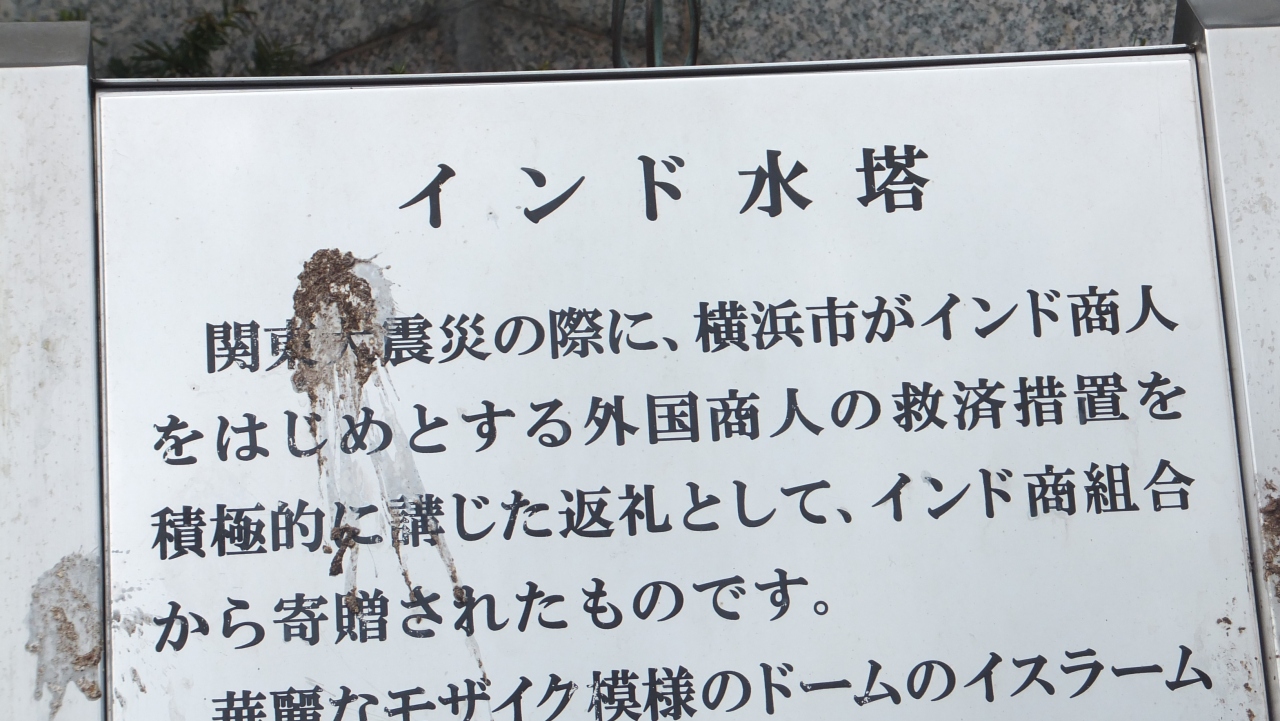 インド水塔
関東大震災の際に、横浜市がインド商人
をはじめとする外国商人の救済措置を
積極的に講じた返礼として、インド商組合
から寄贈されたものです。
華麗なモザイク模様のドームのイスラーム